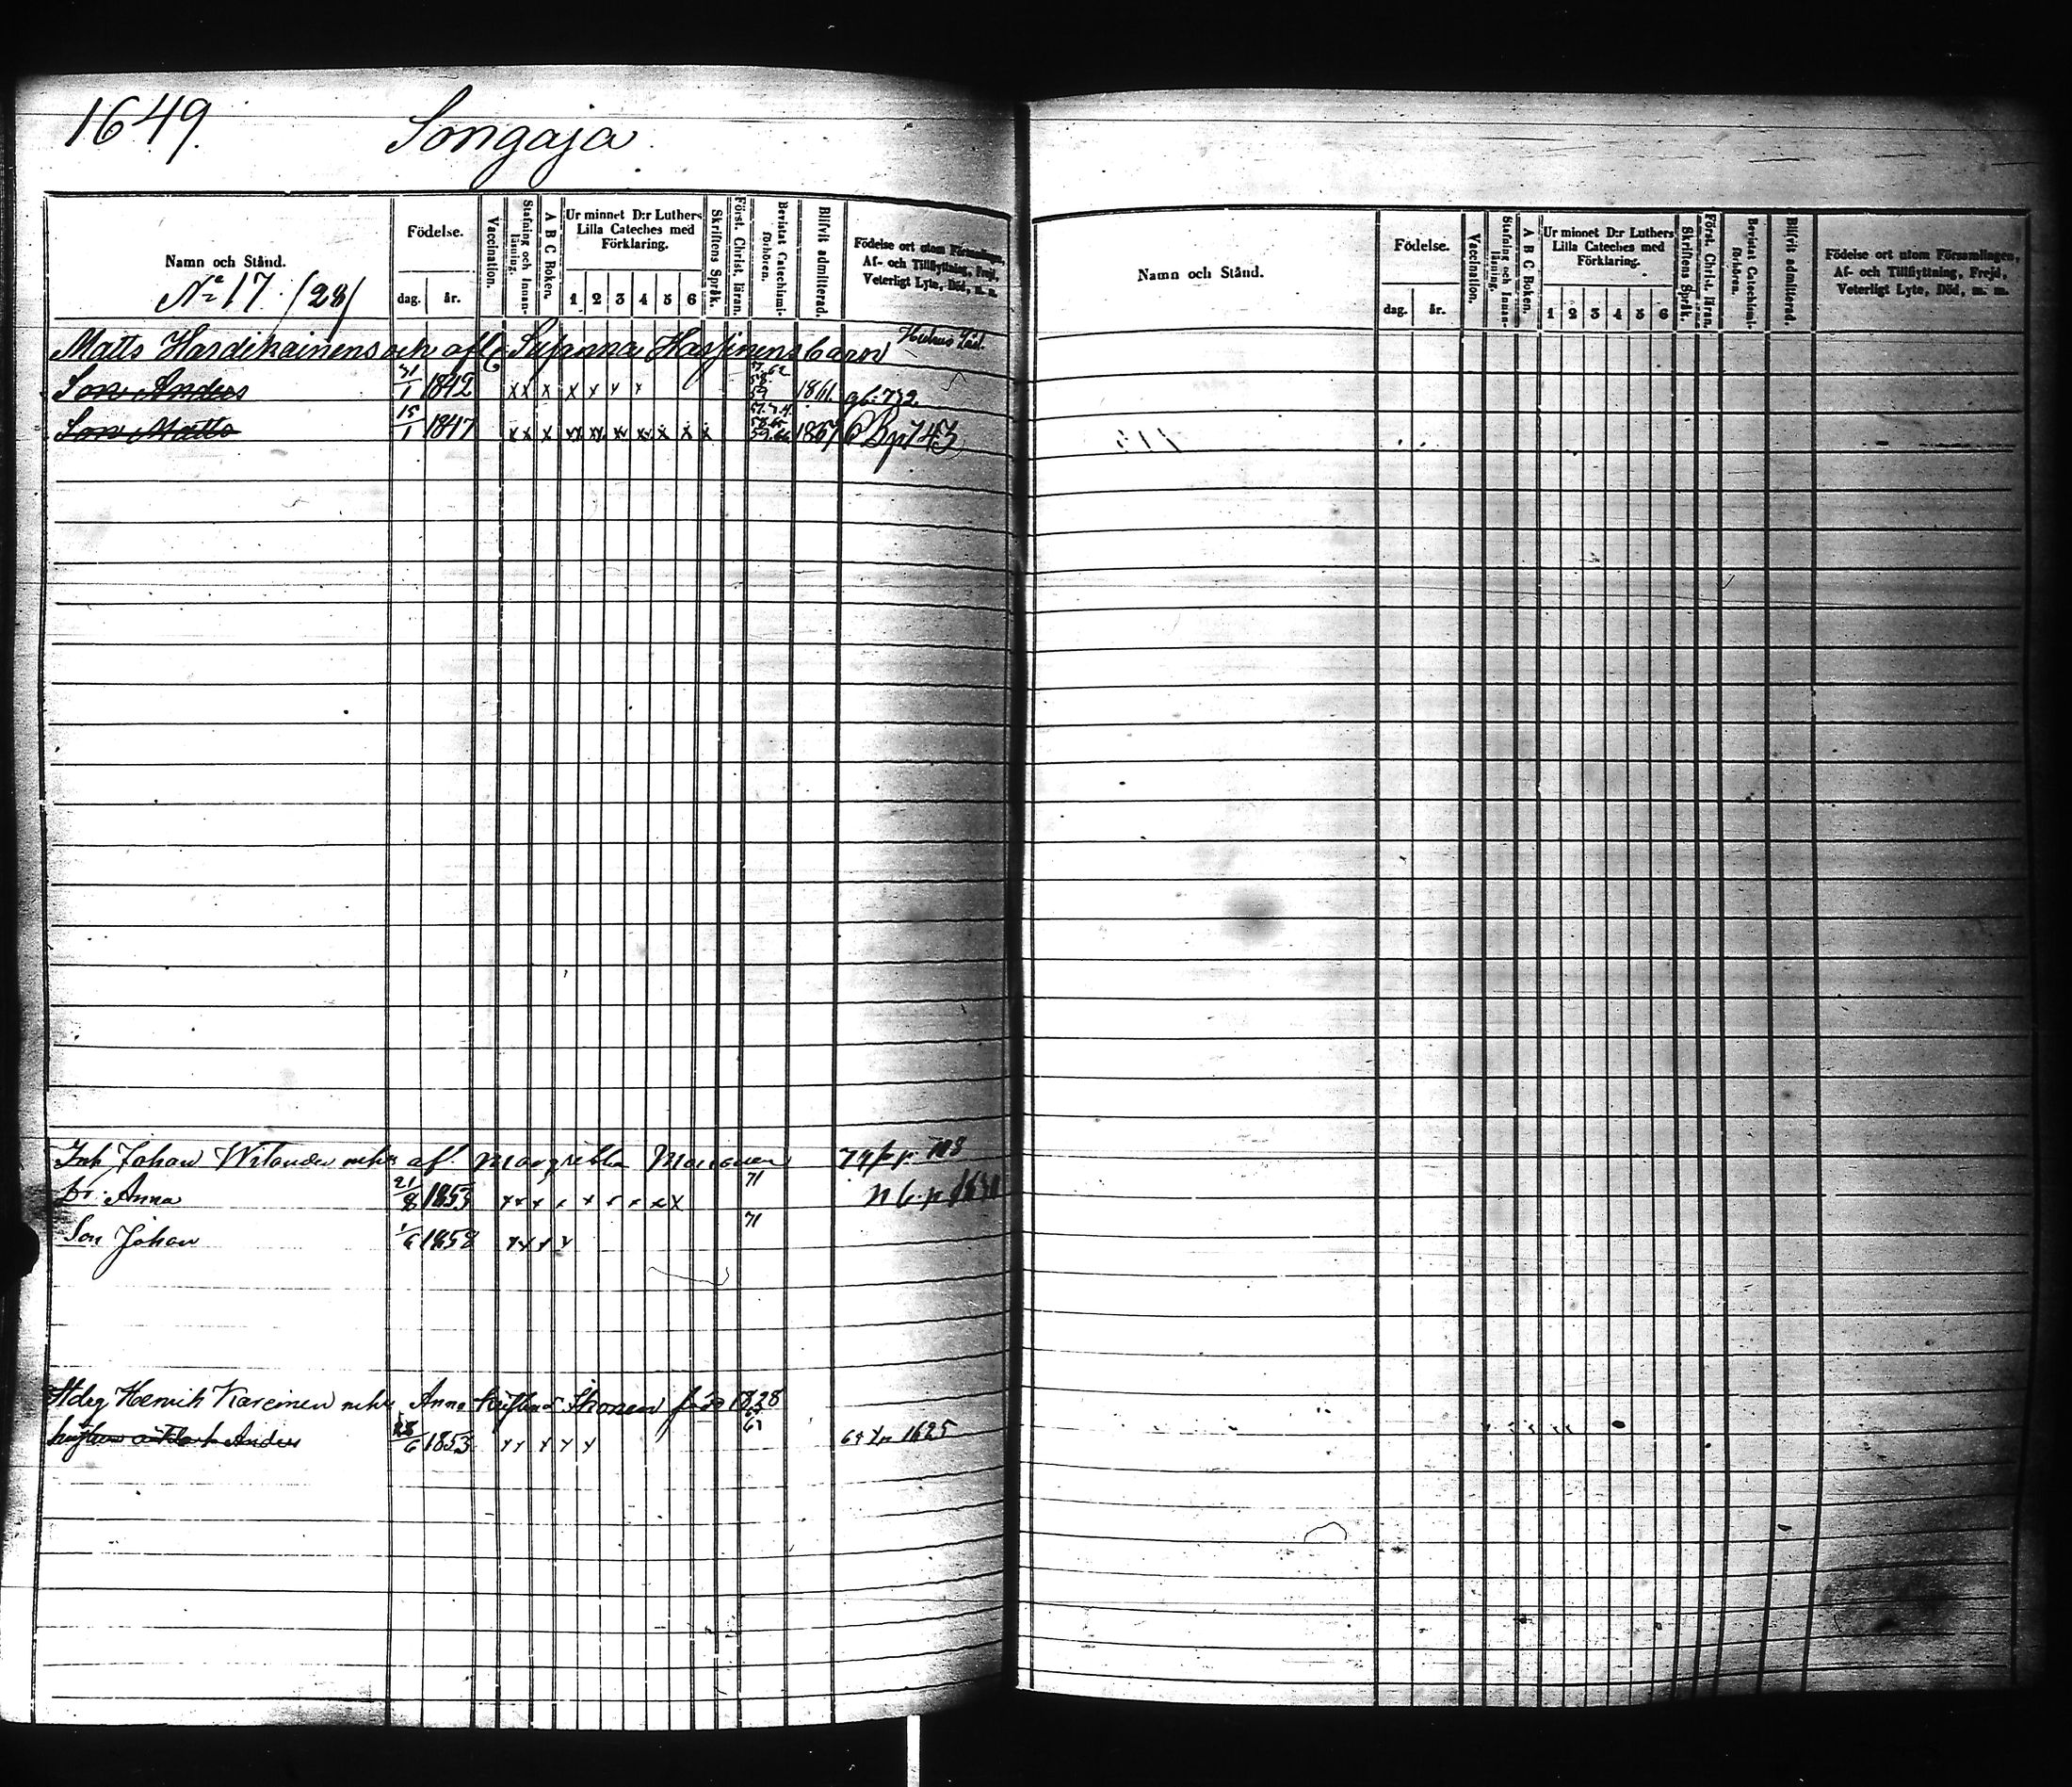 1649. Songaja
Namn och Stånd.
Födelse.
dag. år.
Vaccination.
Stafning och Innanläsning.
A B C Boken.
Ur minnet D:r Luthers Lilla Cateches med Förklaring.
1 2 3 4 5 6
Skriftens Språk.
Först. Christ. läran.
Bevistat Catechismiförhören.
Blifvit admitterad.
Födelse ort utom Församlingen, Af- och Tillflyttning, Frejd, Veterligt Lyte, Död, m. m.
No 17. /28/
Matts Hardikainens och afl. Susanna Hassinens barn
Son Anders 31/1 1842 x x x x x x x 1861. gb. 732.
Son Matts 15/1 1847 x x x 1867 CB p 743
Inh Johan Wilander och af. Margretha
Dr. Anna 21/8 1853 x x x x x x x x x 71
Son Johan 1/6 1858 x x x x 71
Henrik Kareinen Anna Ikonen 1828
Anders 28/6 1853 x x x x x 67 1625
Namn och Stånd.
Födelse.
dag. år.
Vaccination.
Stafning och Innanläsning.
A B C Boken.
Ur minnet D:r Luthers Lilla Cateches med Förklaring.
1 2 3 4 5 6
Skriftens Språk.
Först. Christ. läran.
Bevistat Catechismiförhören.
Blifvit admitterad.
Födelse ort utom Församlingen, Af- och Tillflyttning, Frejd, Veterligt Lyte, Död, m. m.